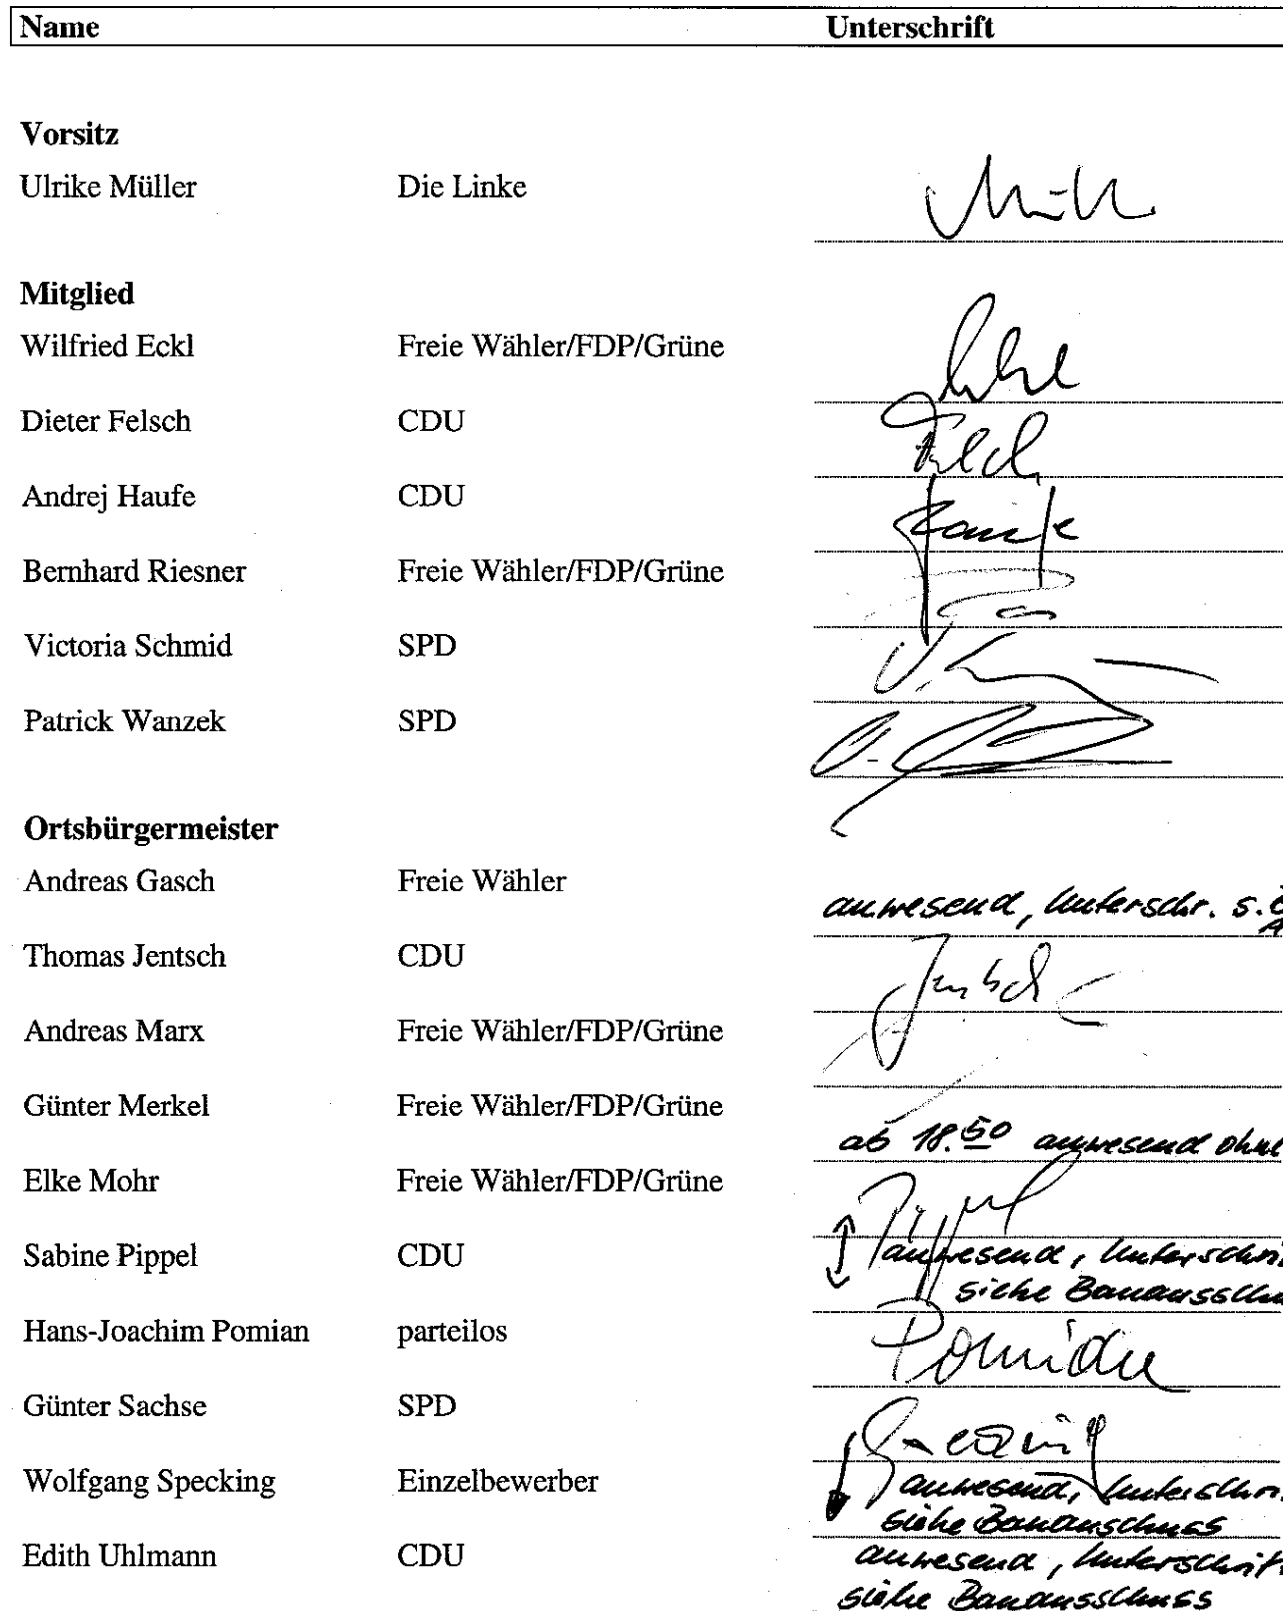 Name Unterschrift
Vorsitz
Ulrike Müller Die Linke
Mitglied
Wilfried Eckl Freie Wähler/FDP/Grüne
Dieter Felsch CDU
Andrej Haufe CDU
Bernhard Riesner Freie Wähler/FDP/Grüne
Victoria Schmid SPD
Patrick Wanzek SPD
Ortsbürgermeister
Andreas Gasch Freie Wähler anwesend, Unterschr. s.
Thomas Jentsch CDU
Andreas Marx Freie Wähler/FDP/Grüne
Günter Merkel Freie Wähler/FDP/Grüne ab 18.50 anwesend ohne
Elke Mohr Freie Wähler/FDP/Grüne
Sabine Pippel CDU anwesend, Unterschri
siehe Bauausschu
Hans-Joachim Pomian parteilos
Günter Sachse SPD
Wolfgang Specking Einzelbewerber anwesend, Unterschri
siehe Bauauschuss
Edith Uhlmann CDU anwesend, Unterschrift
siehe Bauausschuss